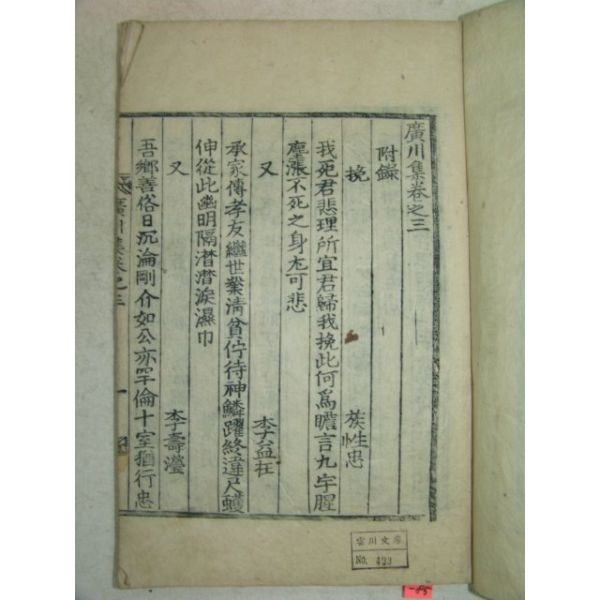 廣川集卷之三
附錄
挽 族性忠
我死君悲理所宜君歸我挽此何爲瞻言九宇腥
塵漲不死之身尤可悲
又 李益枉
承家傳孝友繼世業淸貧佇待神鱗躍終違尺蠖
伸從此幽明隔潸潸淚濕巾
又 李壽瀅
吾鄕善俗日沉淪剛介如公亦罕倫十室猶行忠
廣川集卷之三 一
No. 423